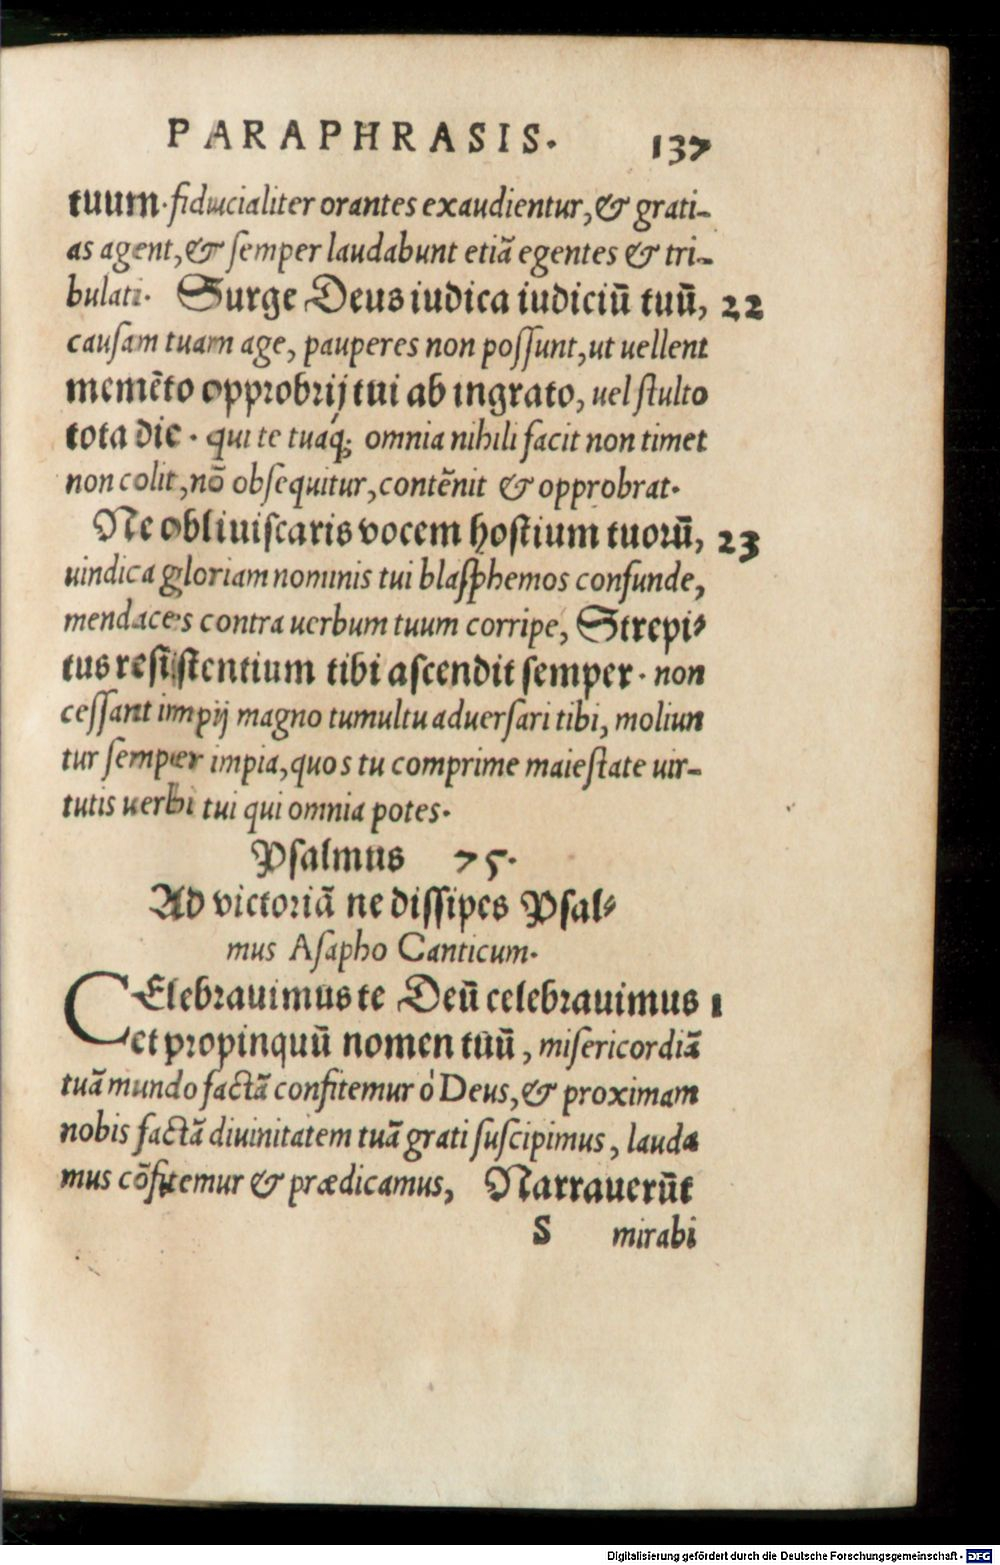 PARAPHRASIS. 137
tuum. fiducialiter orantes exaudientur, & grati-
as agent, & semper laudabunt etiã egentes & tri-
bulati. Surge Deus iudica iudiciũ tuũ, 22
causam tuam age, pauperes non possunt, ut uellent
memẽto opprobrij tui ab ingrato, uel stulto
tota die. qui te tuáq; omnia nihili facit non timet
non colit, nõ obsequitur, contẽnit & opprobrat.
Ne obliuiscaris vocem hostium tuorũ, 23
uindica gloriam nominis tui blasphemos confunde,
mendaces contra uerbum tuum corripe, Strepi-
tus resistentium tibi ascendit semper. non
cessant impij magno tumultu aduersari tibi, moliun
tur semper impia, quos tu comprime maiestate uir-
tutis uerbi tui qui omnia potes.
Psalmus 75.
Ad victoriã ne dissipes Psal-
mus Asapho Canticum.
CElebrauimus te Deũ celebrauimus 1
et propinquũ nomen tuũ, misericordiã
tuã mundo factã confitemur ò Deus, & proximam
nobis factã diuinitatem tuã grati suscipimus, lauda
mus cõfitemur & prædicamus, Narrauerũt
S mirabi
Digitalisierung gefördert durch die Deutsche Forschungsgemeinschaft - DFG